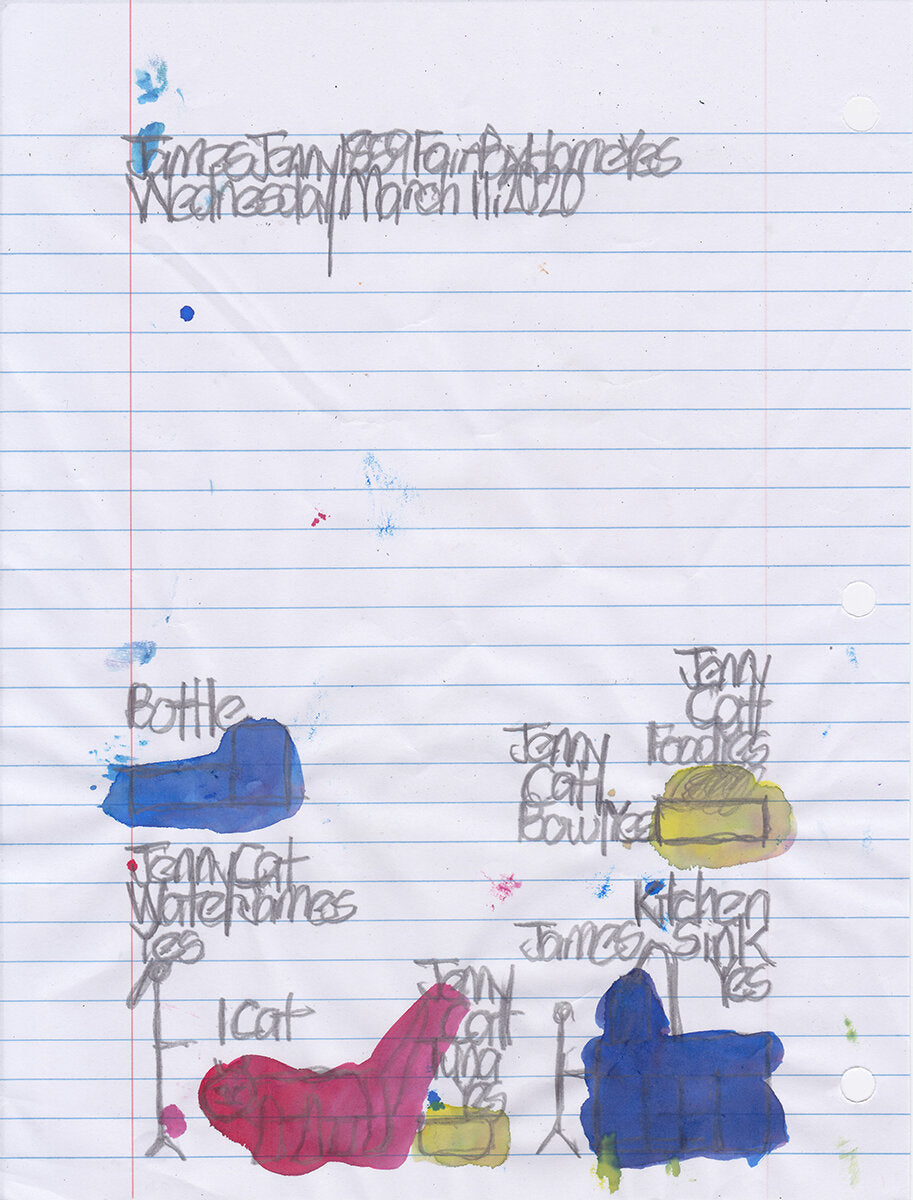 James Jenny 1859 FairBax Home Yes
Wednesday March 11, 2020
Bottle
Jenny
Catt
Foodies
Jenny
Catt
Bowl Yes
Jenny Cat
Water James
Yes
Kitchen
Sink
Yes
James
1 Cat
Jenny
Catt
Tuna
Yes